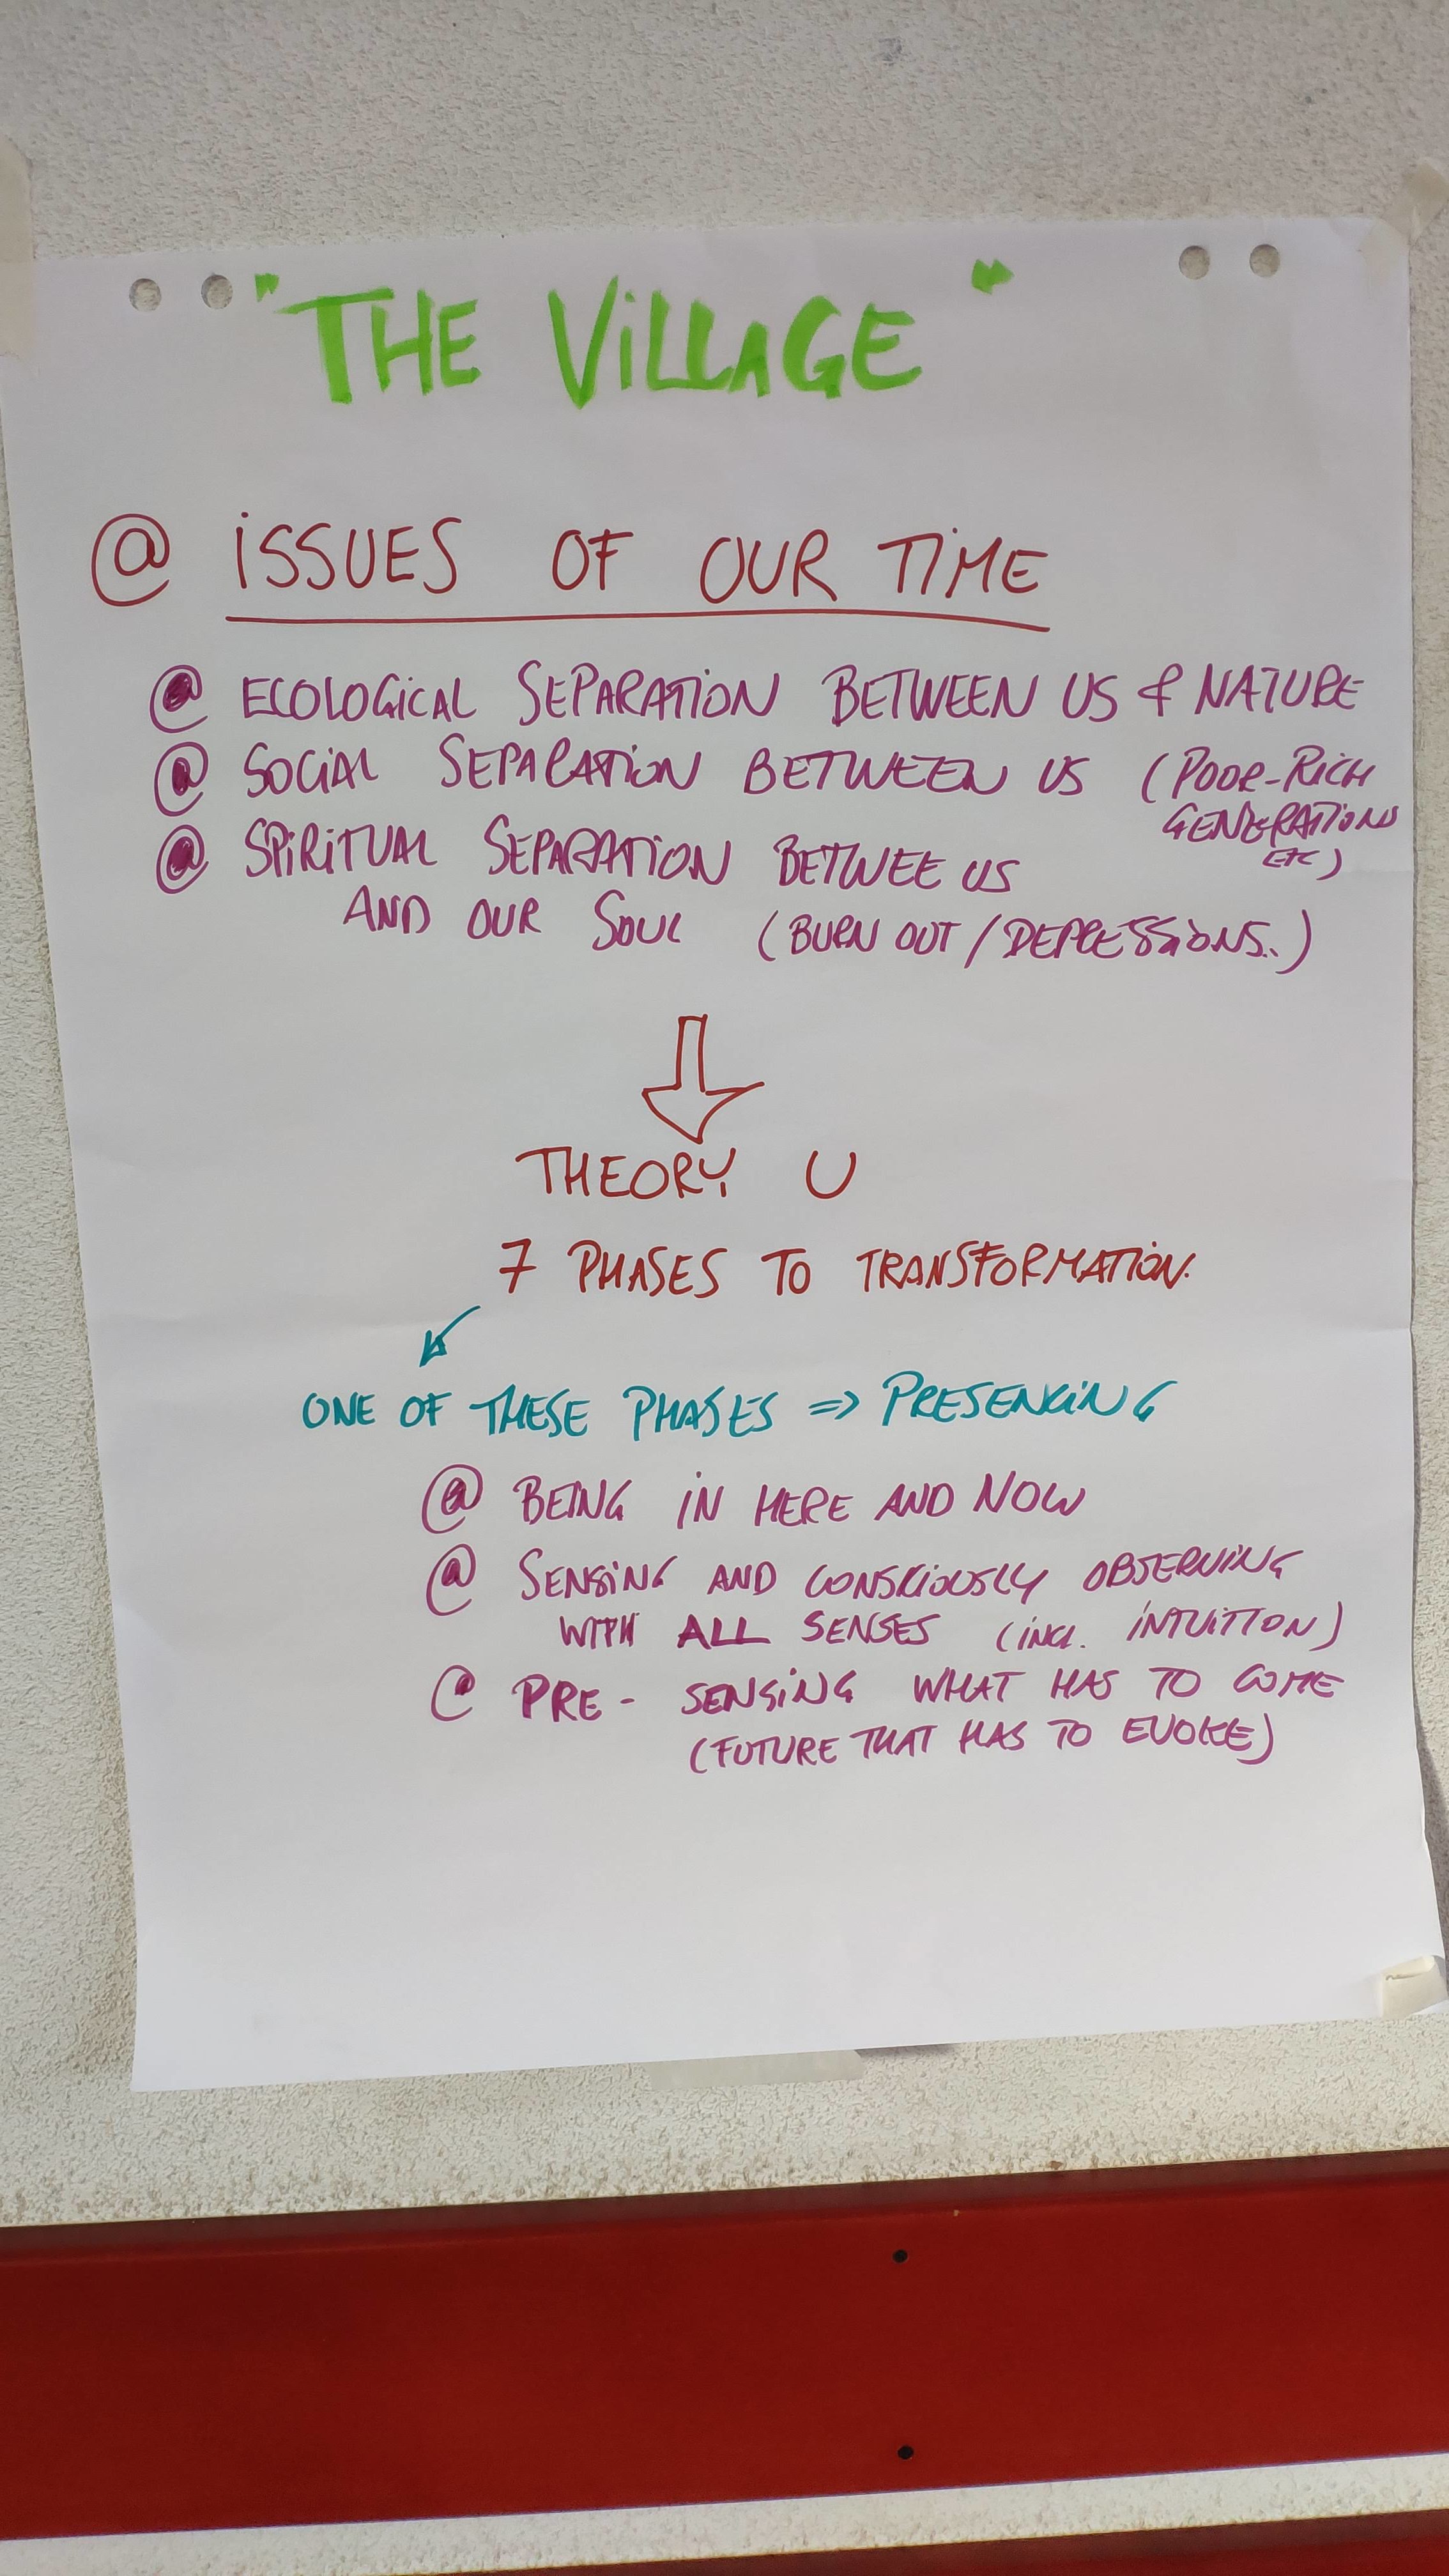 "THE VILLAGE"
@ ISSUES OF OUR TIME
@ ECOLOGICAL SEPARATION BETWEEN US & NATURE
@ SOCIAL SEPARATION BETWEEN US (POOR-RICH
GENERATIONS
ETC)
@ SPIRITUAL SEPARATION BETWEE US
AND OUR SOUL (BURN OUT / DEPRESSIONS..)
THEORY U
7 PHASES TO TRANSFORMATION.
ONE OF THESE PHASES => PRESENCING
@ BEING IN HERE AND NOW
@ SENSING AND CONSCIOUSLY OBSERVING
WITH ALL SENSES (INCL. INTUITION)
@ PRE- SENSING WHAT HAS TO COME
(FUTURE THAT HAS TO EVOKE)